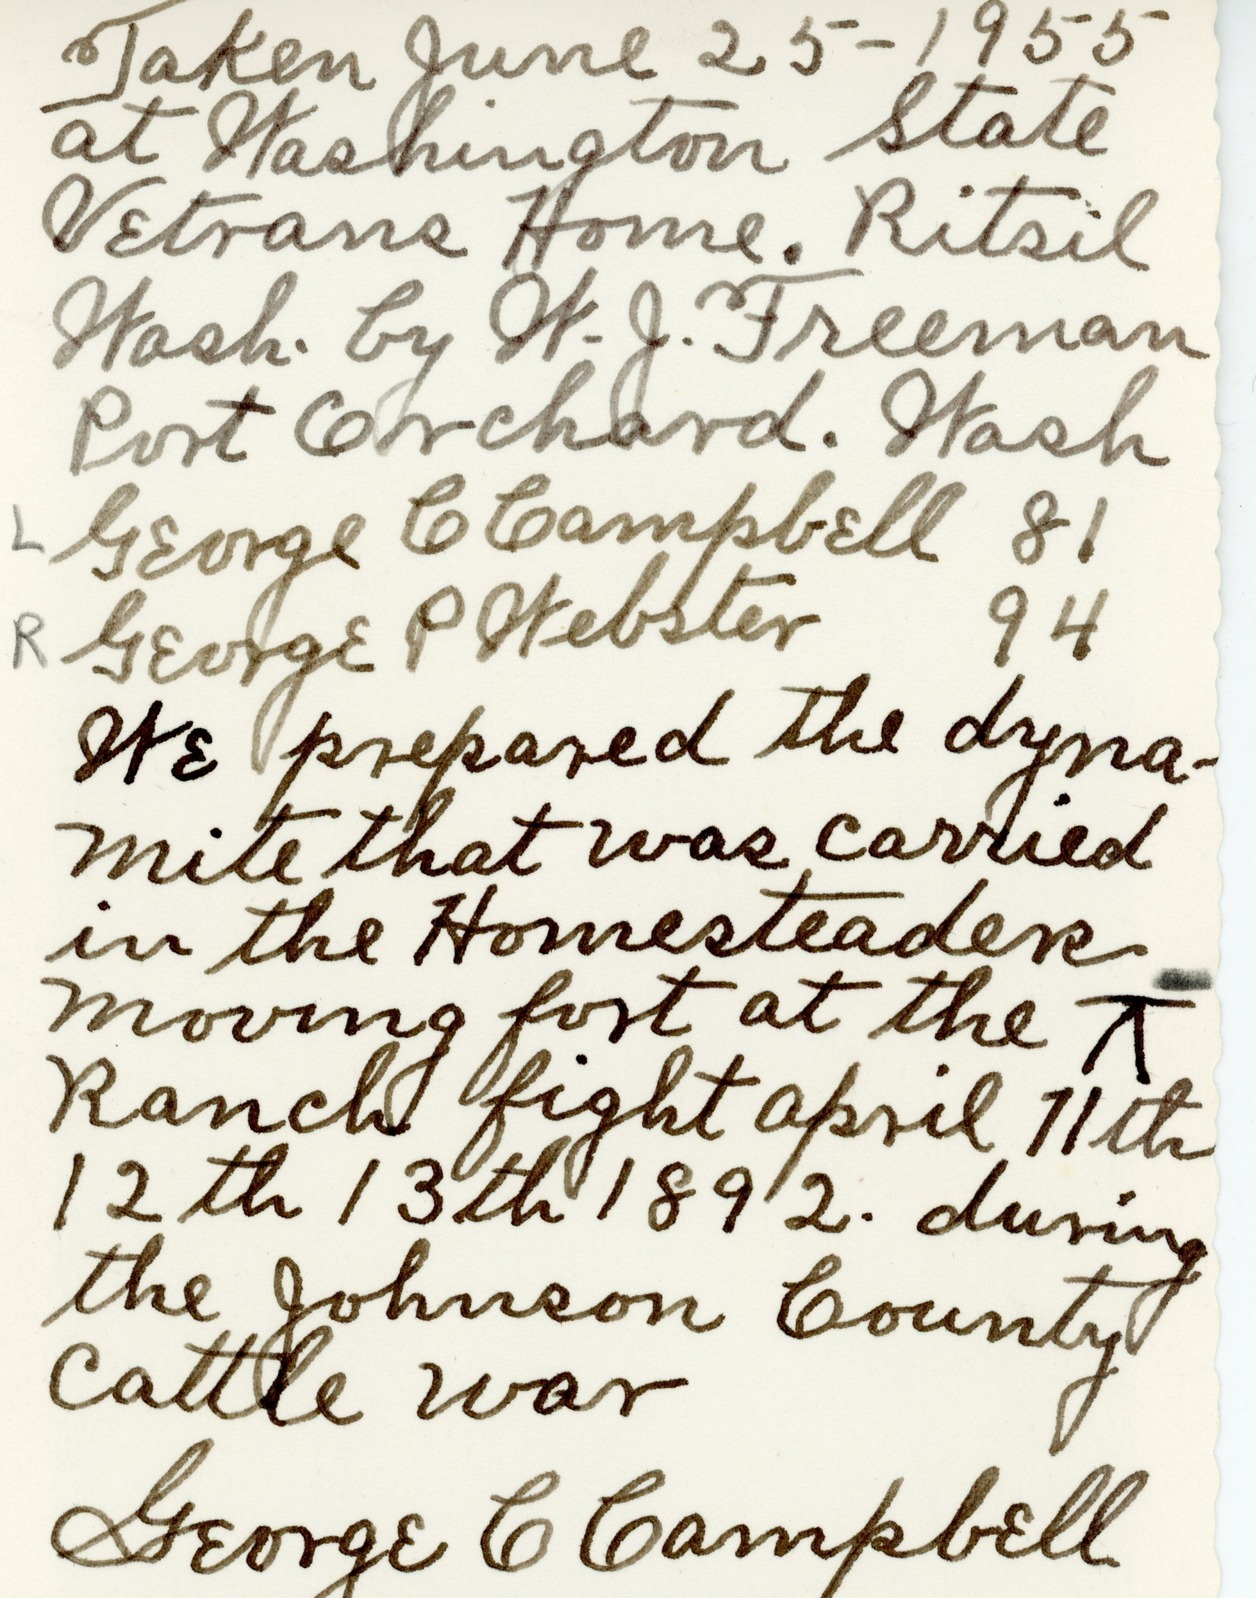 Taken June 25-1955
at Washington State
Vetrans Home. Ritsil
Wash. by W. J. Freeman
Port Orchard. Wash
L George C Campbell 81
R George P Webster 94
We prepared the dyna-
mite that was carried
in the Homesteaders
moving fort at the TA
Ranch fight april 11th
12th 13th 1892. during
the Johnson County
Cattle war
George C Campbell